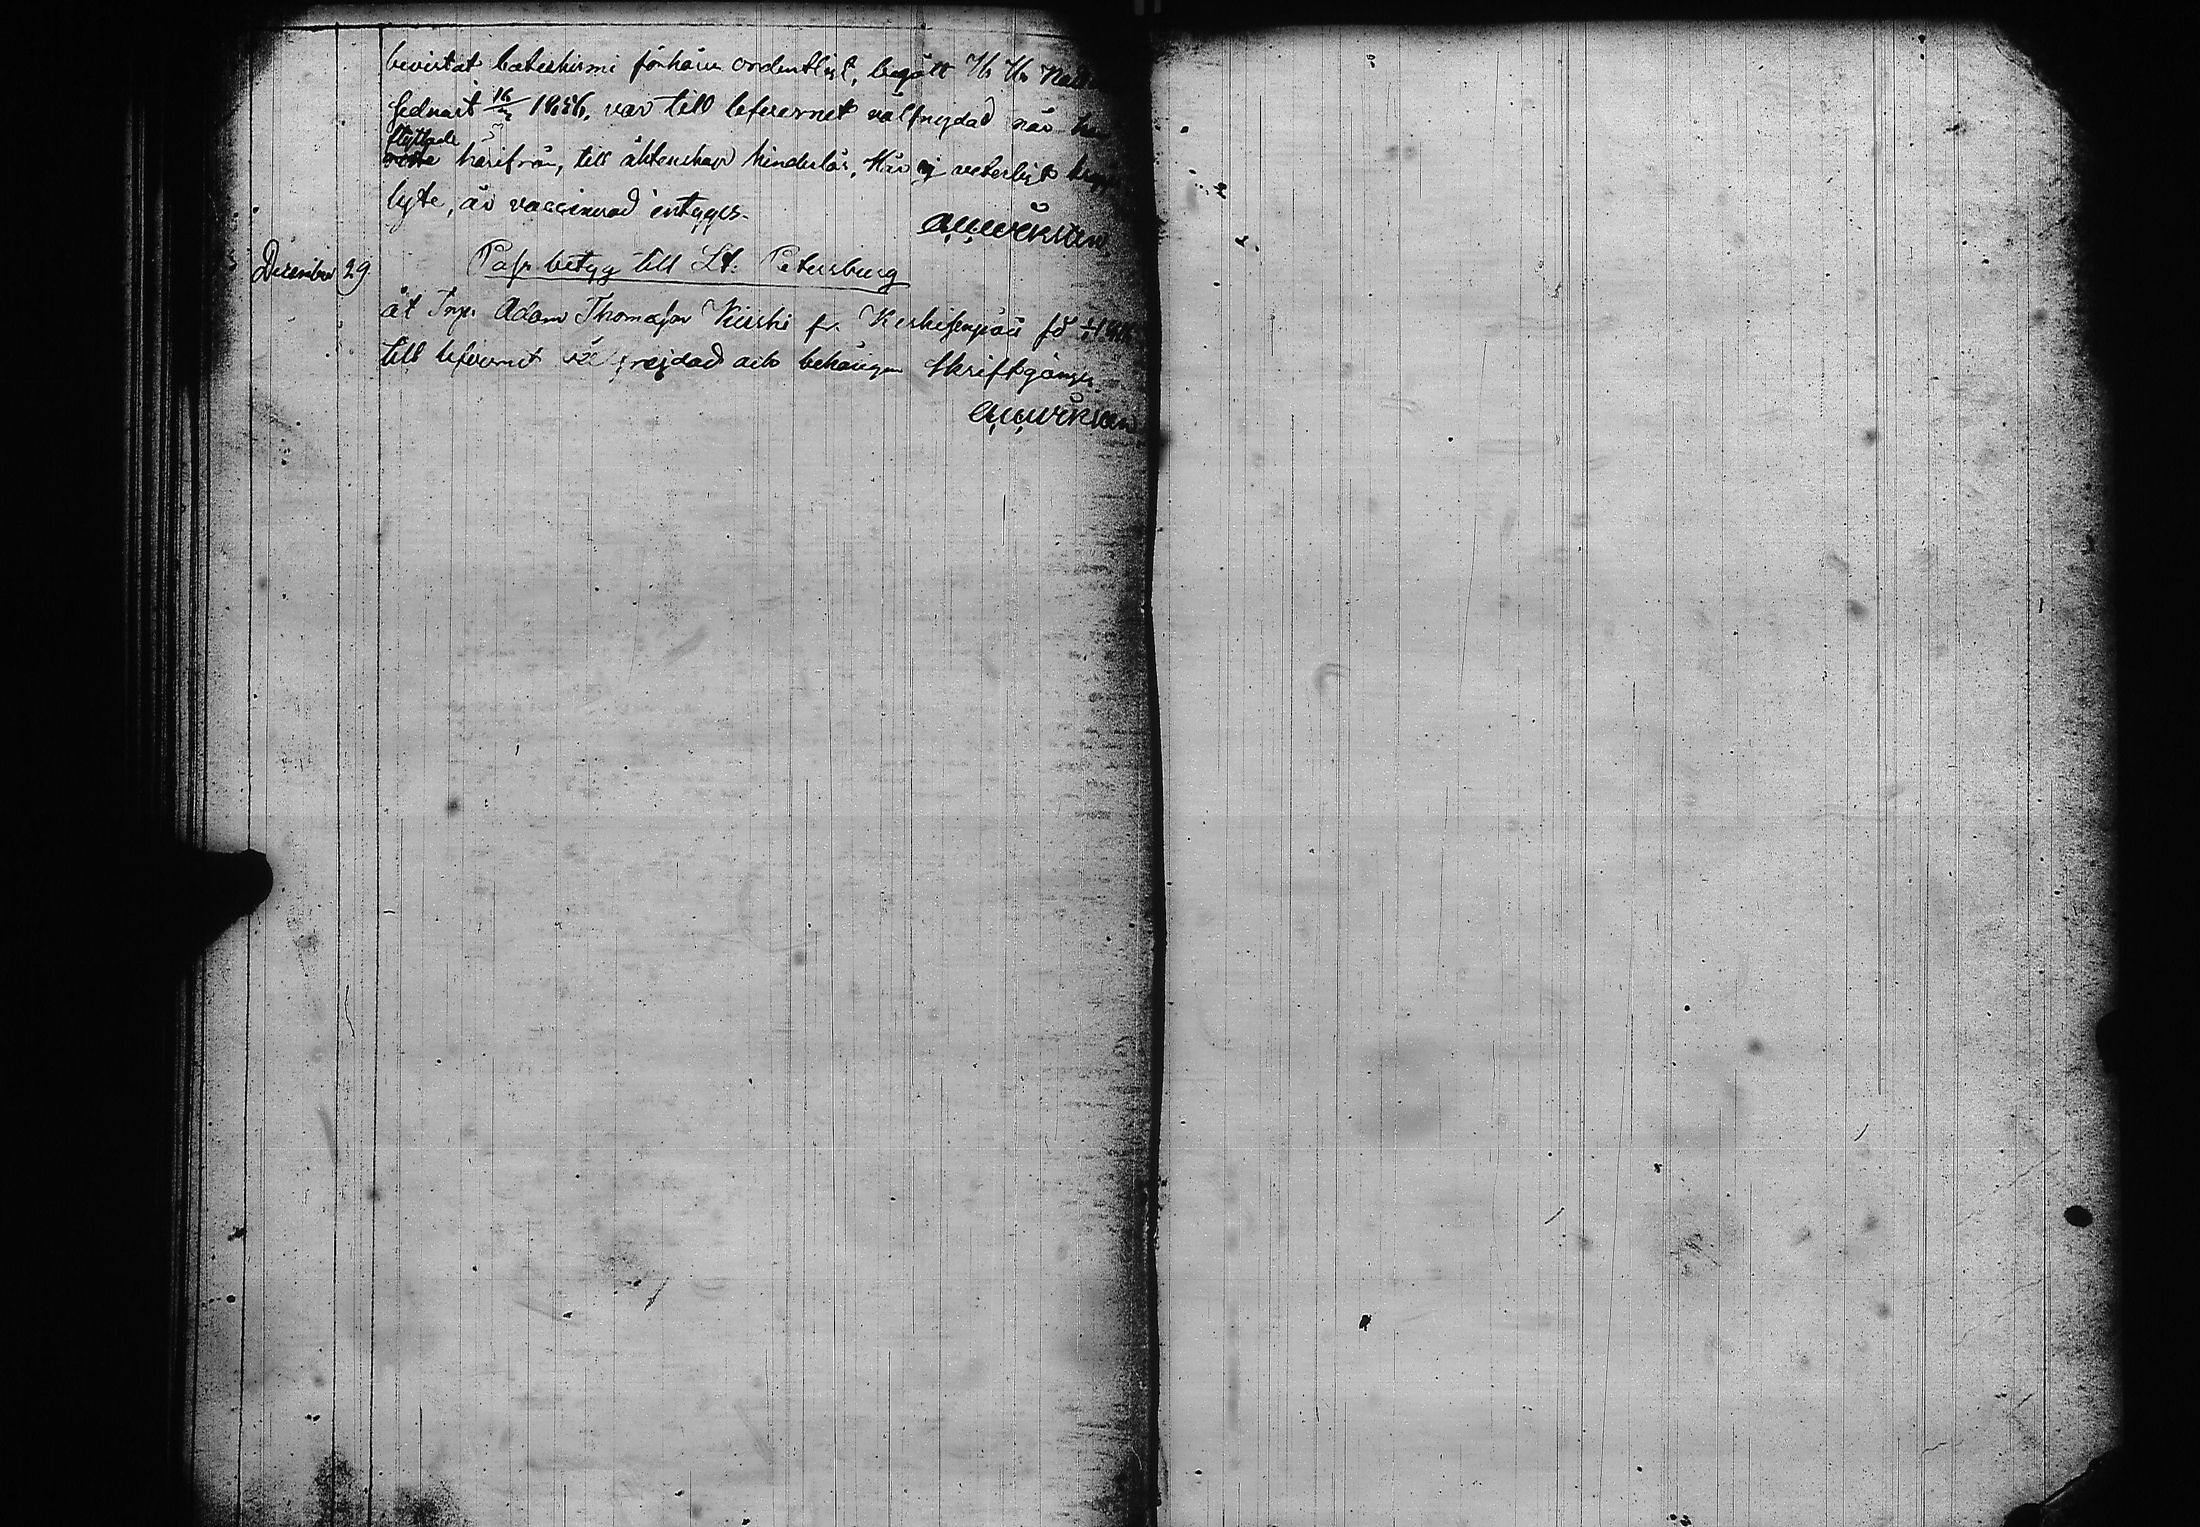 bevistat Catechismi förhören ordentligt, begått H. H. Natt
sednast 16/3 1856, var till lefvernet välfrejdad när han
flyttade
reste härifrån, till äktenskap hinderlös, Har ej veterligt
lyte, är vaccinerad intygges.
December 29
Pass betyg till St. Petersburg
åt Inp. Adam Thomasson Kiiski fr. Keskisenpää fö
till lefvernet välfrejdad och behörigen skriftgången